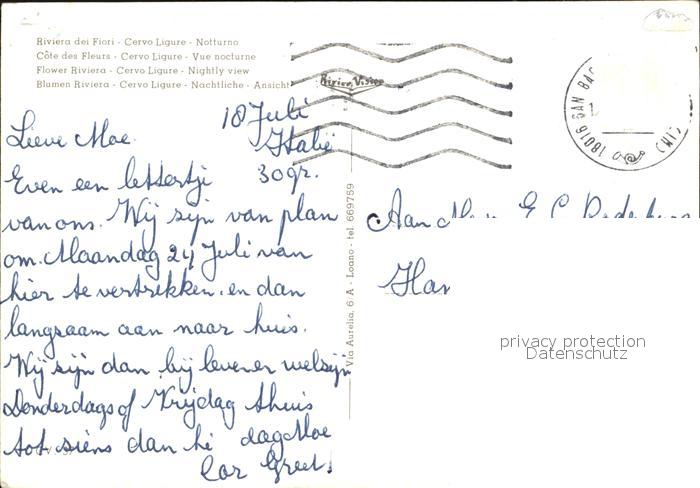 Riviera dei Fiori - Cervo Ligure - Notturno
Côte des Fleurs - Cervo Ligure - Vue nocturne
Flower Riviera - Cervo Ligure - Nightly view
Blumen Riviera - Cervo Ligure - Nachtliche - Ansicht
18 Juli
Italië
30 gr.
Lieve Moe.
Even een lettertje
van ons. Wij zijn van plan
om. Maandag 24 Juli van
hier te vertrekken. en dan
langzaam aan naar huis.
Wij zijn dan bij leven en welzijn
Donderdags of Vrijdag thuis
tot siens dan hè dag Moe
Cor Greet.
Via Aurelia, 6 A - Loano - tel. 669759
18016 SAN BA
(IM)
Aan E C
Har
privacy protection
Datenschutz